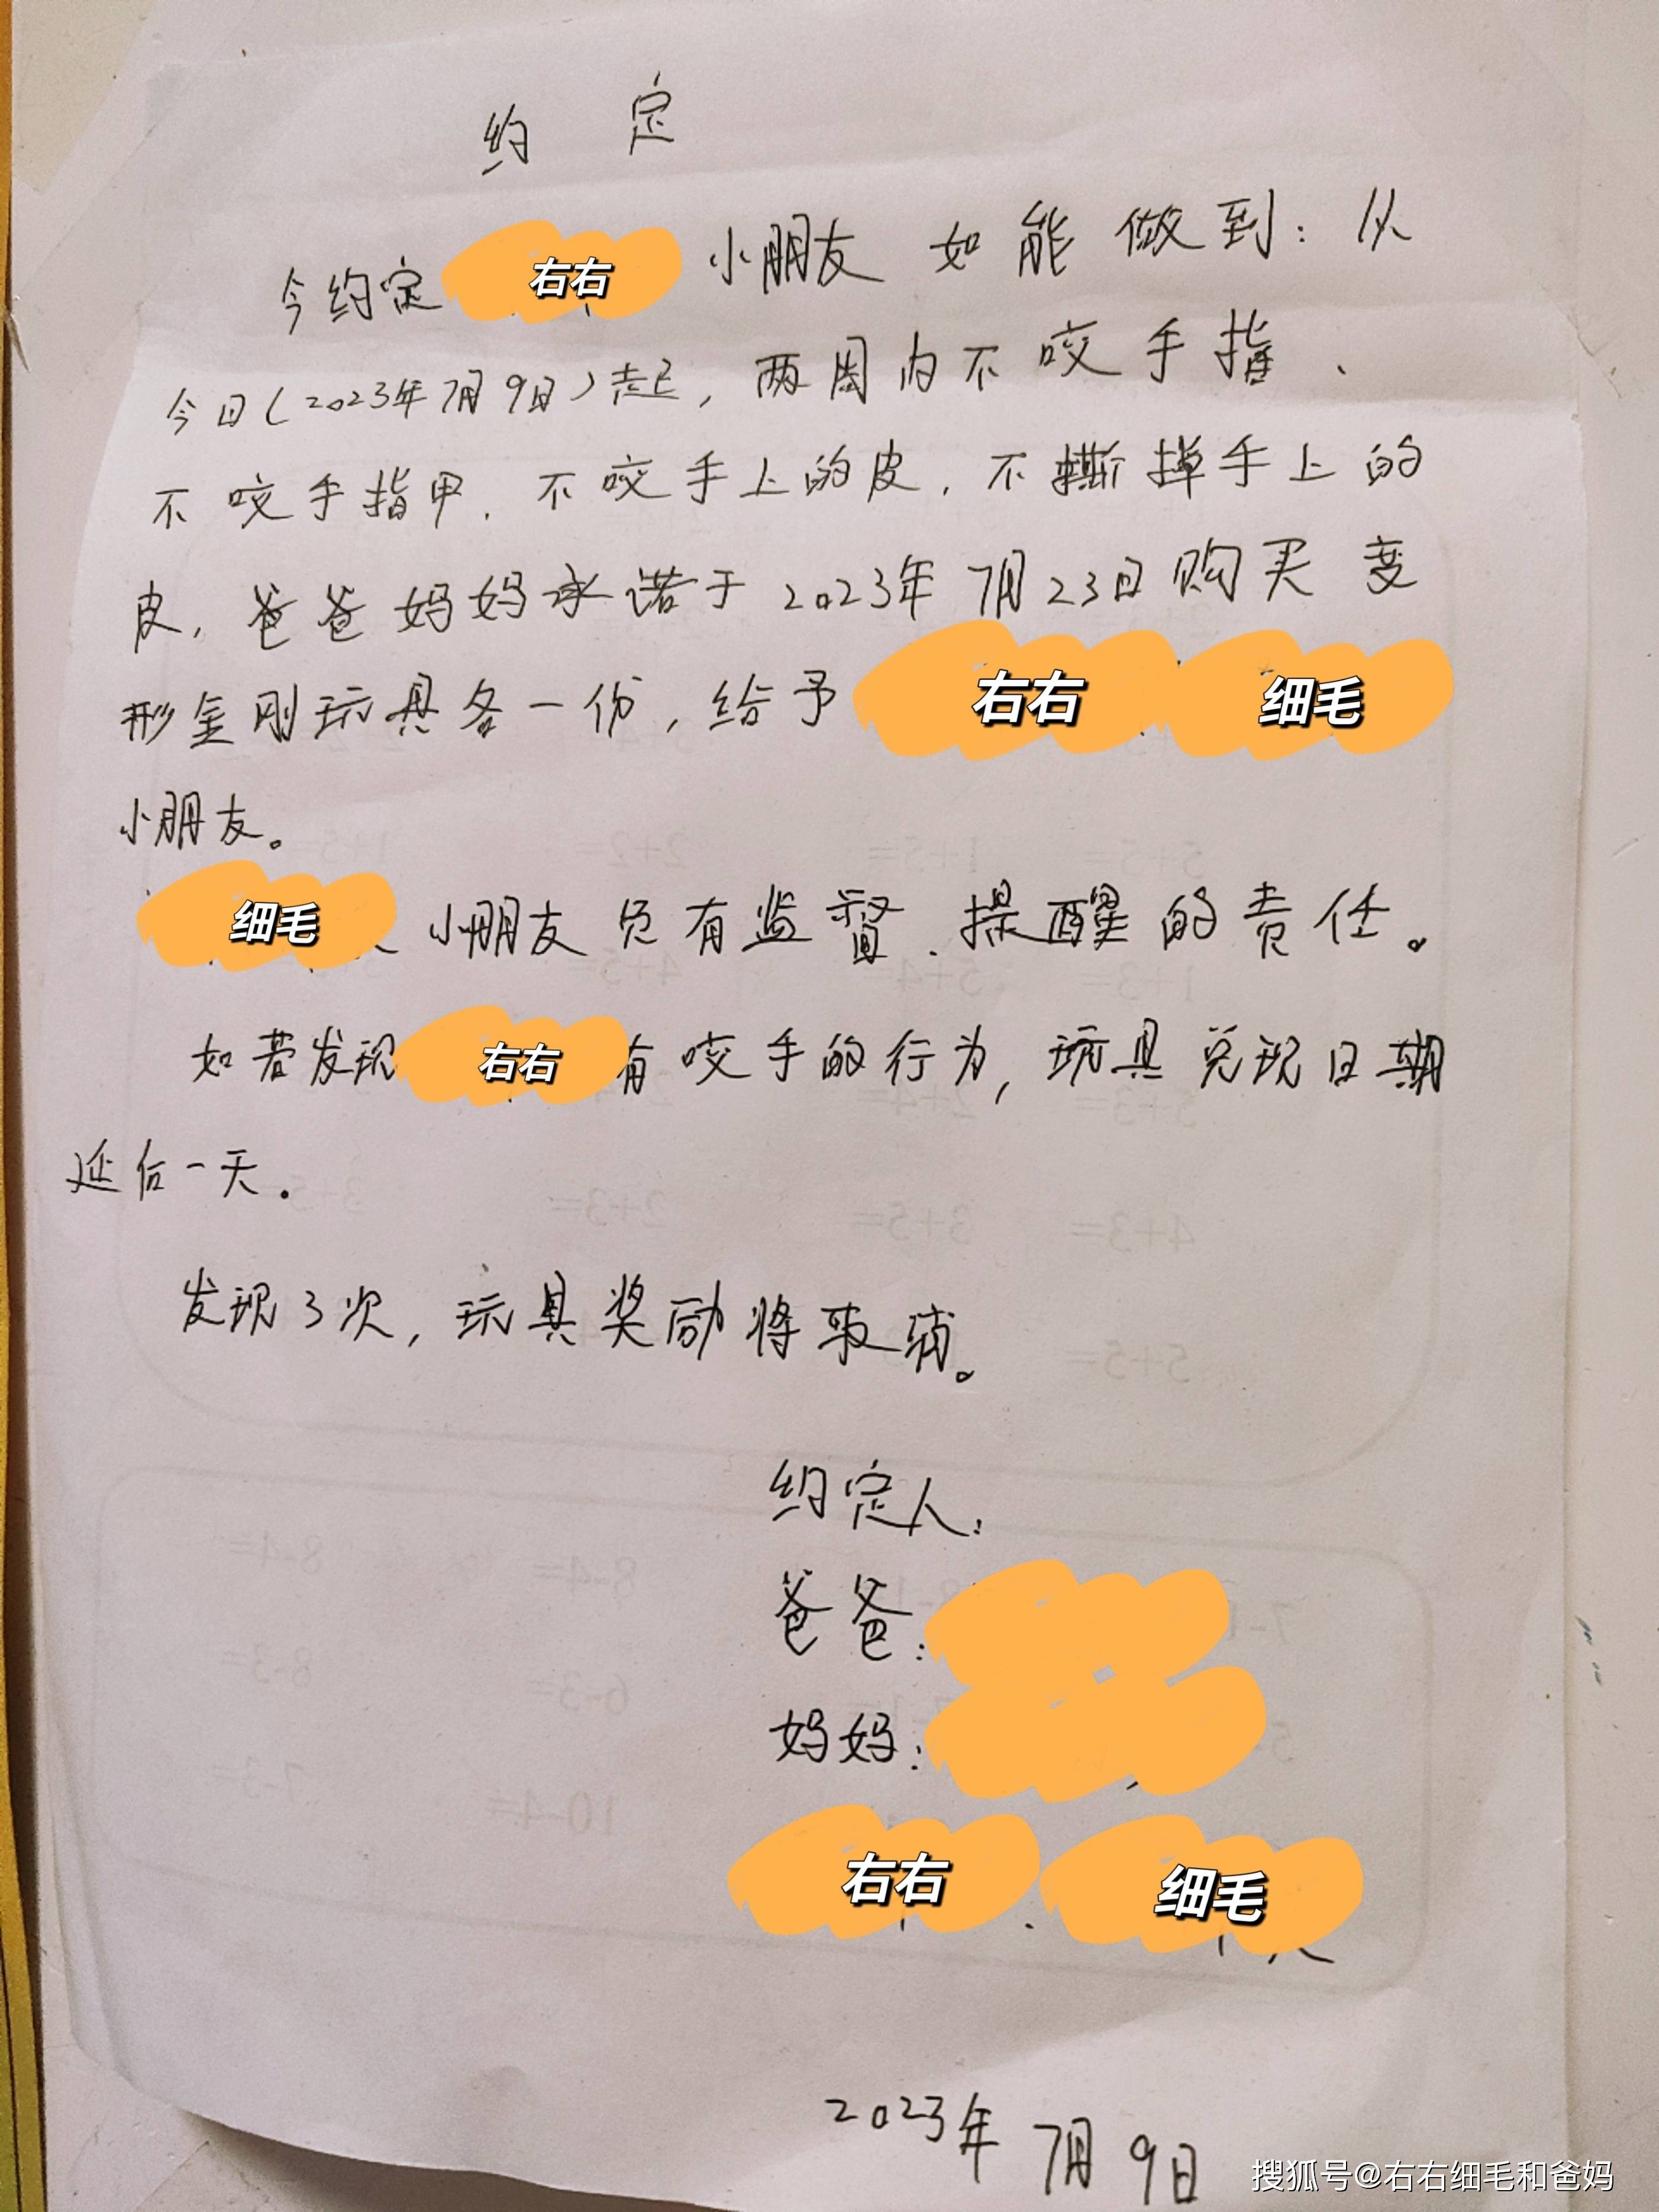 约 定
今约定 右右 小朋友 如能做到：从
今日（2023年7月9日）起，两周内不咬手指、
不咬手指甲、不咬手上的皮、不撕掉手上的
皮，爸爸妈妈承诺于2023年7月23日购买变
形金刚玩具各一份，给予 右右 细毛
小朋友。
细毛 小朋友负有监督、提醒的责任。
如若发现 右右 有咬手的行为，玩具兑现日期
延后一天。
发现3次，玩具奖励将取消。
约定人：
爸爸：
妈妈：
右右 细毛
2023年7月9日
搜狐号@右右细毛和爸妈
5+5= 1+5= 2+2= 1+5
1+3= 5+4= 4+5=
5+3= 2+4=
4+3= 3+5= 2+3= 3+5
5+5=
8-4= 8-4
6-3= 8-3=
10-4= 7-3=